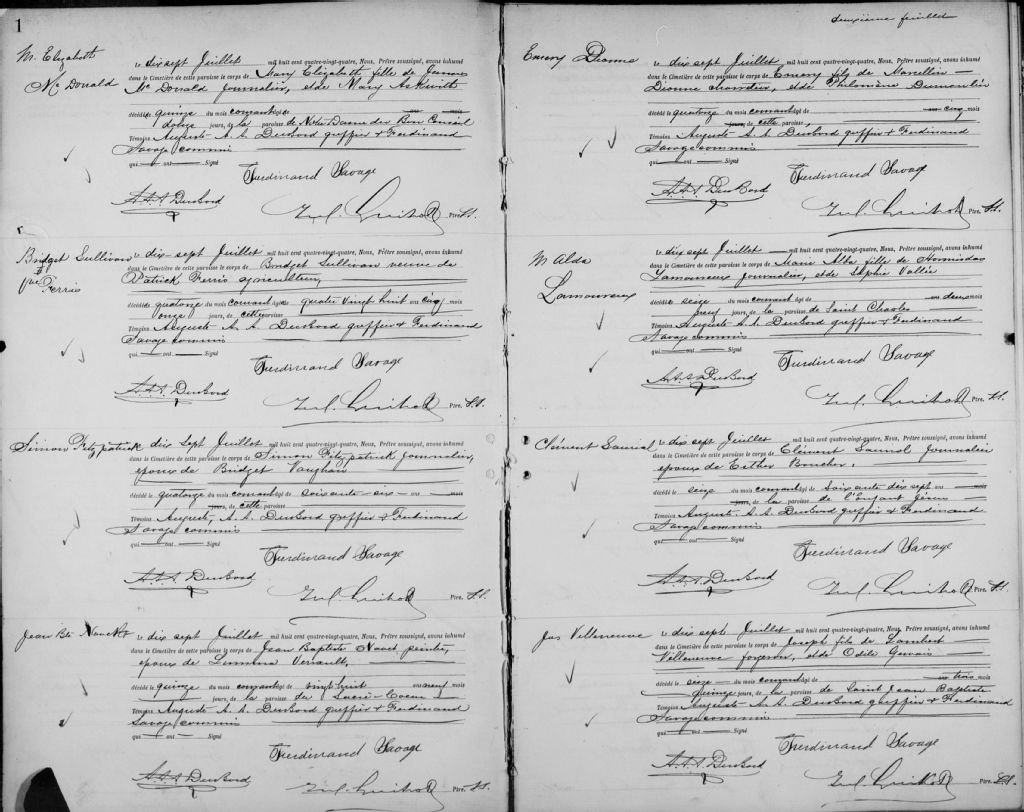 1
M. Elizabeth
Mc Donald
le dix sept Juillet mil huit cent quatre-vingt-quatre, Nous, Prêtre soussigné, avons inhumé
dans le Cimetière de cette paroisse le corps de Mary Elizabeth fille de James
Mc Donald journalier, et de Mary
décédée quinze du mois courant âgée de un mois
douze jours, de la paroisse de Notre Dame du Bon Conseil
Témoins Auguste A. A. DenBord greffier & Ferdinand
Savage commis
qui ont Signé
Ferdinand Savage
A. A. A. DenBord
Ptre. S.S.
Bridget Sullivan
Vve Ferris
le dix sept Juillet mil huit cent quatre-vingt-quatre, Nous, Prêtre soussigné, avons inhumé
dans le Cimetière de cette paroisse le corps de Bridget Sullivan veuve de
Patrick Ferris agriculteur,
décédée quatorze du mois courant âgée quatre vingt huit ans cinq mois
onze jours, de cette paroisse
Témoins Auguste A. A. DenBord greffier & Ferdinand
Savage commis
qui ont Signé
Ferdinand Savage
A. A. A. DenBord
Ptre. S.S.
Simon Fitzpatrick
le dix Sept Juillet mil huit cent quatre-vingt-quatre, Nous, Prêtre soussigné, avons inhumé
dans le Cimetière de cette paroisse le corps de Simon Fitzpatrick journalier,
époux de Bridget Vaughan
décédé le quatorze du mois courant âgé de soixante-six ans mois
jours, de cette paroisse
Témoins Auguste A. A. DenBord greffier & Ferdinand
Savage commis
qui ont Signé
Ferdinand Savage
A. A. A. DenBord
Ptre. S.S.
Jean Bte
le dix sept Juillet mil huit cent quatre-vingt-quatre, Nous, Prêtre soussigné, avons inhumé
dans le Cimetière de cette paroisse le corps de Jean Baptiste peintre,
époux de
décédé le quinze du mois courant âgé de vingt huit ans neuf mois
jours, de la paroisse du Sacré-Coeur
Témoins Auguste A. A. DenBord greffier & Ferdinand
Savage commis
qui ont Signé
Ferdinand Savage
A. A. A. DenBord
Ptre. S.S.
deuxième feuillet
Emery Dionne
le dix sept Juillet mil huit cent quatre-vingt-quatre, Nous, Prêtre soussigné, avons inhumé
dans le Cimetière de cette paroisse le corps de Emery fils de
Dionne et de Philomène
décédé le quatorze du mois courant âgé de un cinq mois
jours, de cette paroisse
Témoins Auguste A. A. DenBord greffier & Ferdinand
Savage commis
qui ont Signé
Ferdinand Savage
A. A. A. DenBord
Ptre. S.S.
M. Alda
Lamoureux
le dix sept Juillet mil huit cent quatre-vingt-quatre, Nous, Prêtre soussigné, avons inhumé
dans le Cimetière de cette paroisse le corps de Marie Alba fille de Hormisdas
Lamoureux journalier, et de Sophie
décédé le seize du mois courant âgé de deux mois
neuf jours, de la paroisse de Saint Charles
Témoins Auguste A. A. DenBord greffier & Ferdinand
Savage commis
qui ont Signé
Ferdinand Savage
A. A. A. DenBord
Ptre. S.S.
Clément Sauriol
le dix sept Juillet mil huit cent quatre-vingt-quatre, Nous, Prêtre soussigné, avons inhumé
dans le Cimetière de cette paroisse le corps de Clément Sauriol journalier
époux de Esther Boucher,
décédé le seize du mois courant âgé de soixante dix sept ans mois
jours, de la paroisse de l'Enfant Jésus
Témoins Auguste A. A. DenBord greffier & Ferdinand
Savage commis
qui ont Signé
Ferdinand Savage
A. A. A. DenBord
Ptre. S.S.
Jos Villeneuve
le dix sept Juillet mil huit cent quatre-vingt-quatre, Nous, Prêtre soussigné, avons inhumé
dans le Cimetière de cette paroisse le corps de Joseph fils de Lambert
Villeneuve forgeron, et de Odile Gervais
décédé le seize du mois courant âgé de trois mois
quinze jours, de la paroisse de Saint Jean Baptiste
Témoins Auguste A. A. DenBord greffier & Ferdinand
Savage commis
qui ont Signé
Ferdinand Savage
A. A. A. DenBord
Ptre. S.S.